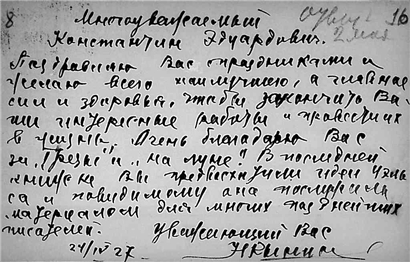 8 Многоуважаемый 16
Константин Эдуардович. 2 мая
Поздравляю Вас праздниками и
желаю всего наилучшего, а главное
сил и здоровья, чтобы закончить Ва-
ши интересные работы и провести их
в жизнь. Очень благодарю Вас
за „Грезы" и „на луне". В последней
книжке Вы предвосхитили идеи Уэль
са и повидимому она послужила
материалом для многих позднейших
писателей. Уважающий Вас
24/IV 27